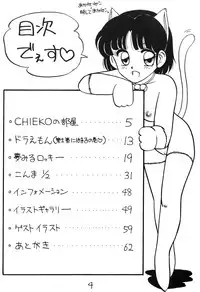 目次
でぇす♡
・CHIEKOの部屋 5
・ドラえもん 13
・夢みるロッキー 19
・こんま ½ 31
・インフォメーション 48
・イラストギャラリー 49
・ゲストイラスト 59
・あとがき 62
4